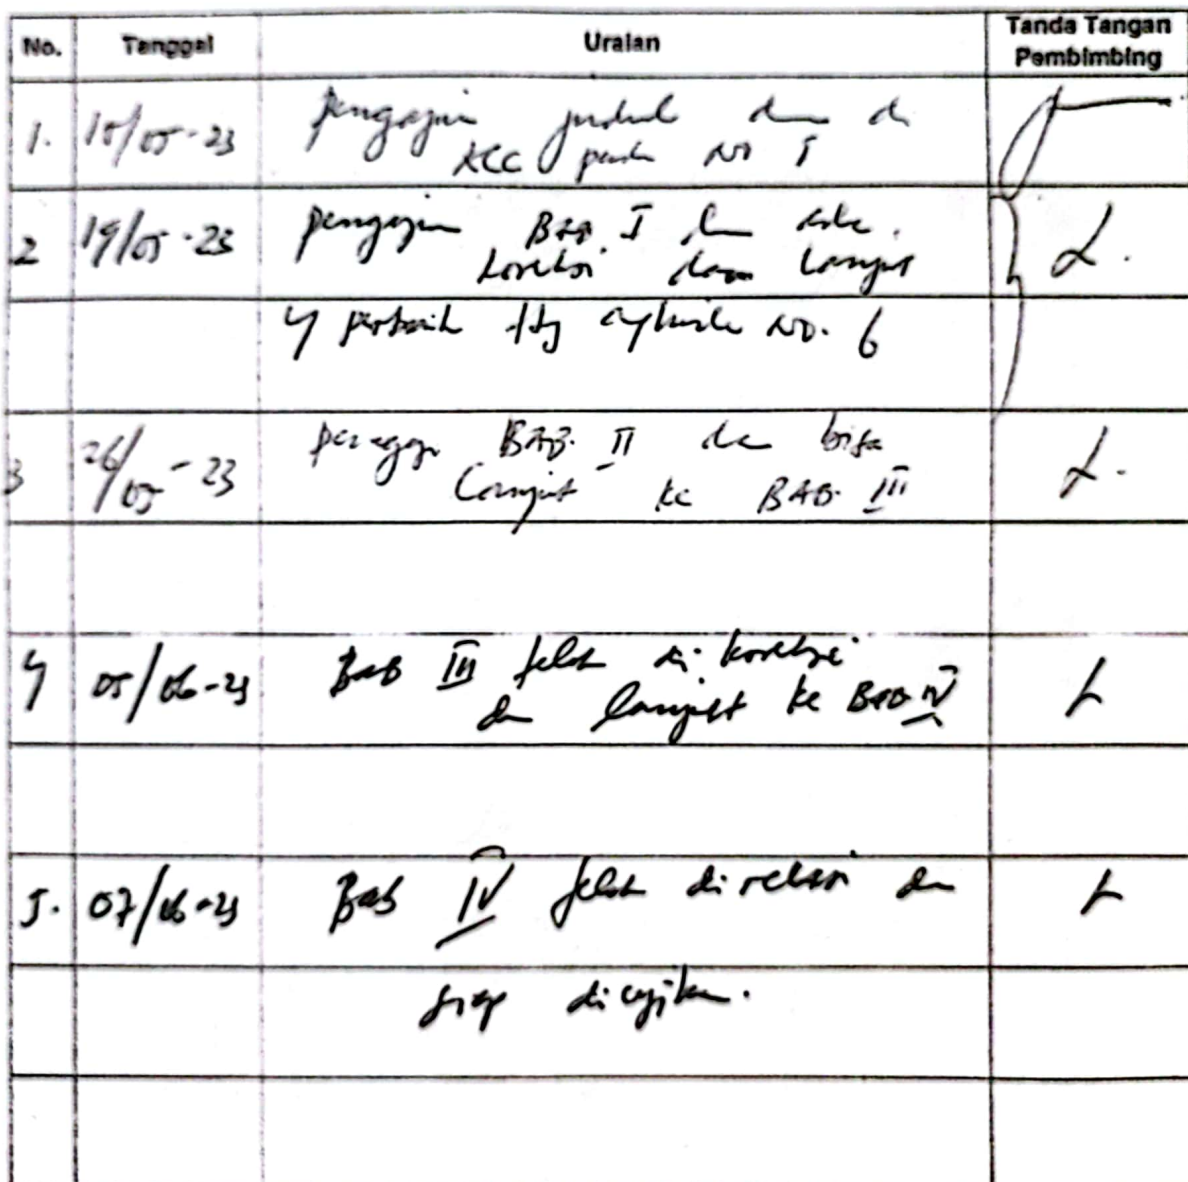 No. Tanggal Uraian Tanda Tangan Pembimbing
1. 15/05-23 pengajuan judul dan di
ACC pada No 1
2 19/05-23 pengajuan BAB. I dan ada
koreksi dan lanjut
No. 6
3 26/05-23 BAB. II dan bisa
Lanjut ke BAB. III
4 05/06-23 Bab III telah di koreksi
dan lanjut ke BAB IV
5. 07/06-23 Bab IV telah di reksi dan
siap diujikan.